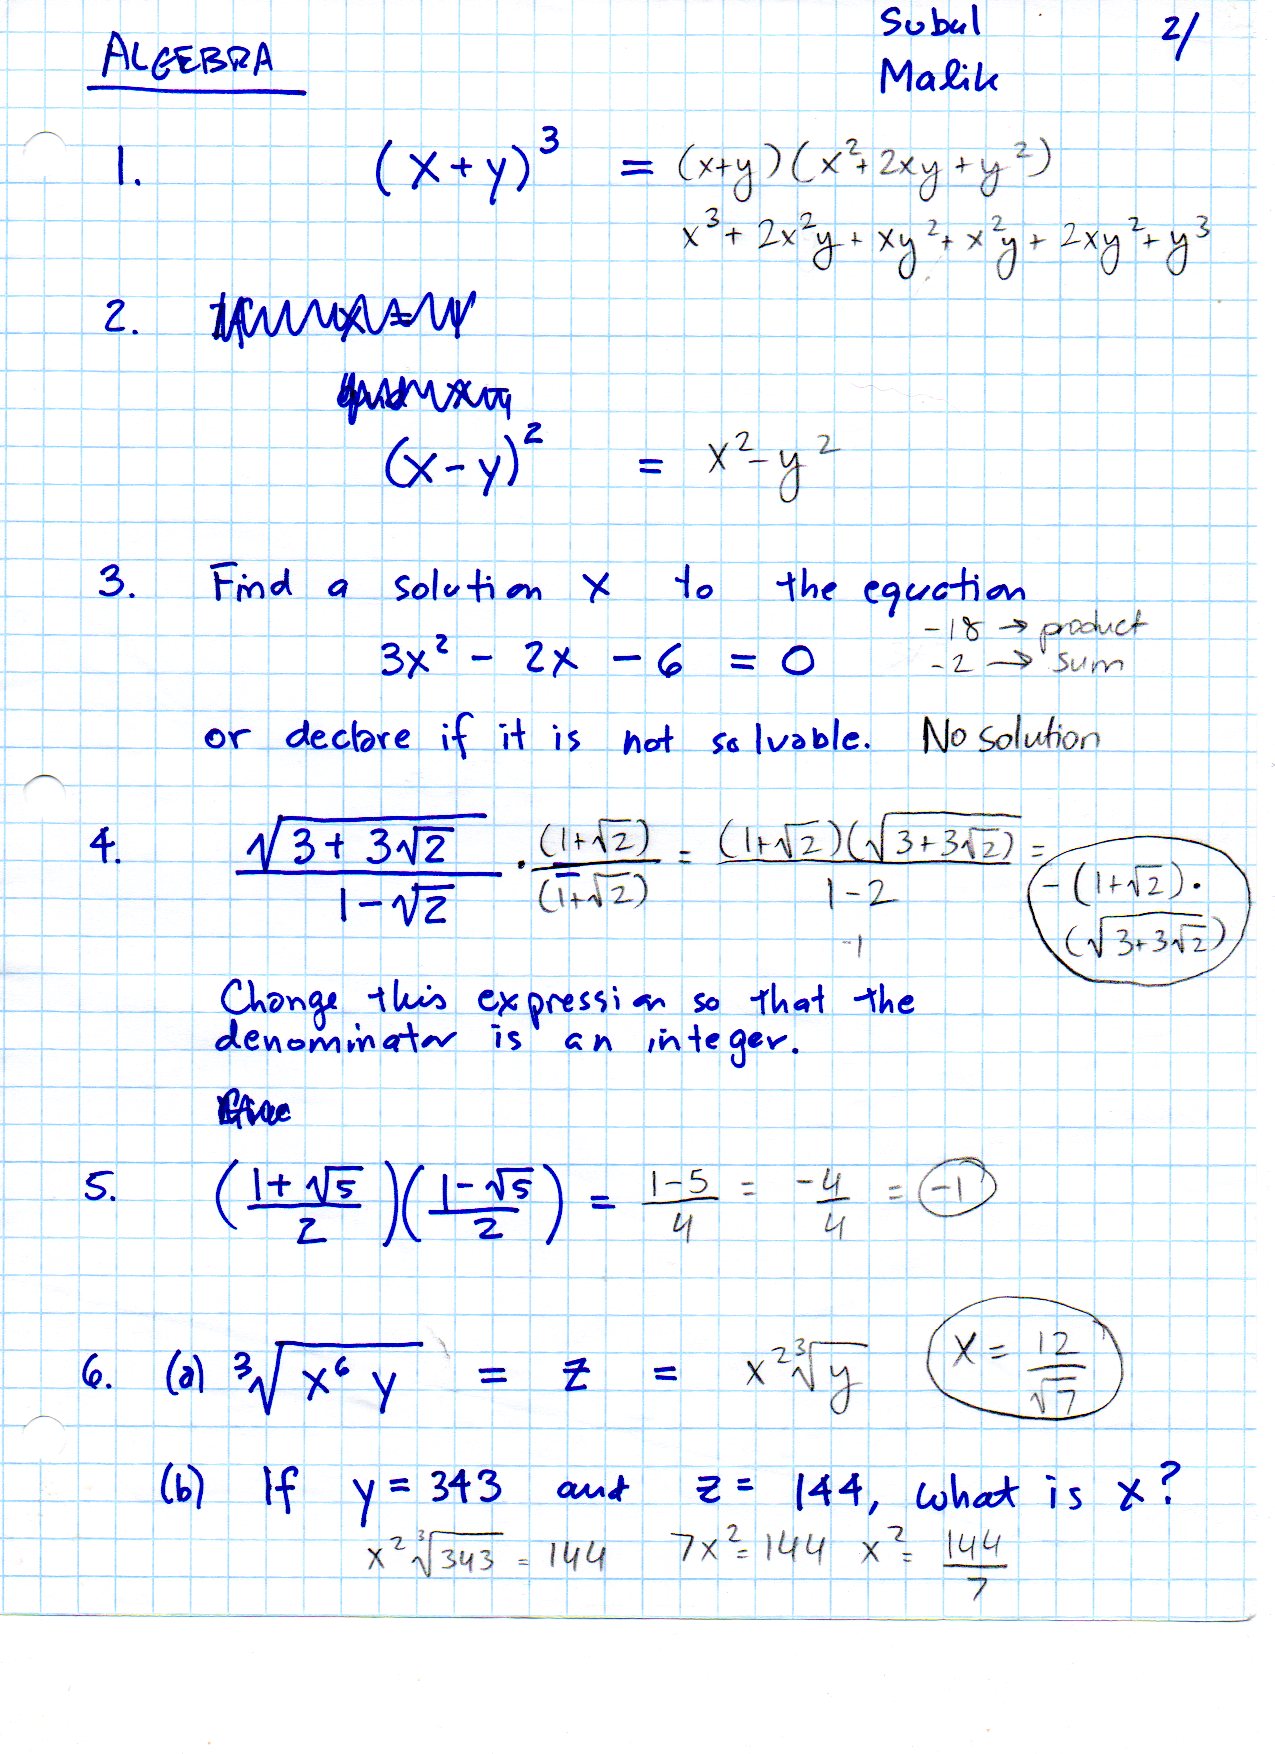 ALGEBRA
Subul
Malik
2/
1. (x+y)³ = (x+y)(x²+2xy+y²)
x³+2x²y+xy²+x²y+2xy²+y³
2.
(x-y)² = x²-y²
3. Find a solution x to the equation
-18 → product
3x² - 2x - 6 = 0
-2 → sum
or declare if it is not solvable. No solution
4. √(3+3√2) / (1-√2) · (1+√2)/(1+√2) = (1+√2)(√(3+3√2)) / (1-2) = -(1+√2)·
(√(3+3√2))
-1
Change this expression so that the
denominator is an integer.
5. ((1+√5)/2)((1-√5)/2) = (1-5)/4 = -4/4 = -1
6. (a) ³√(x⁶y) = z = x² ³√y x = 12/√7
(b) If y = 343 and z = 144, what is x?
x² ³√343 = 144 7x² = 144 x² = 144/7